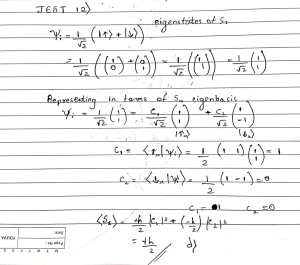 JEST 12)
eigenstates of Sz
Ψi = 1/√2 (|↑⟩ + |↓⟩)
= 1/√2 ((1 0) + (0 1)) = 1/√2 ((1 1)) = 1/√2 (1 1)
Representing in terms of Sx eigenbasis
Ψi = 1/√2 (1 1) = C₁/√2 (1 1) + C₂/√2 (1 -1)
C₁ = ⟨ |Ψi⟩ = 1/2 (1 1)(1 1) = 1
C₂ = ⟨ |Ψ⟩ = 1/2 (1 -1) = 0
C₁ = 1 C₂ = 0
⟨Sx⟩ = +ħ/2 |C₁|² + (-ħ/2) |C₂|²
= +ħ/2 d)
Page No.:
Date:
YOUVA